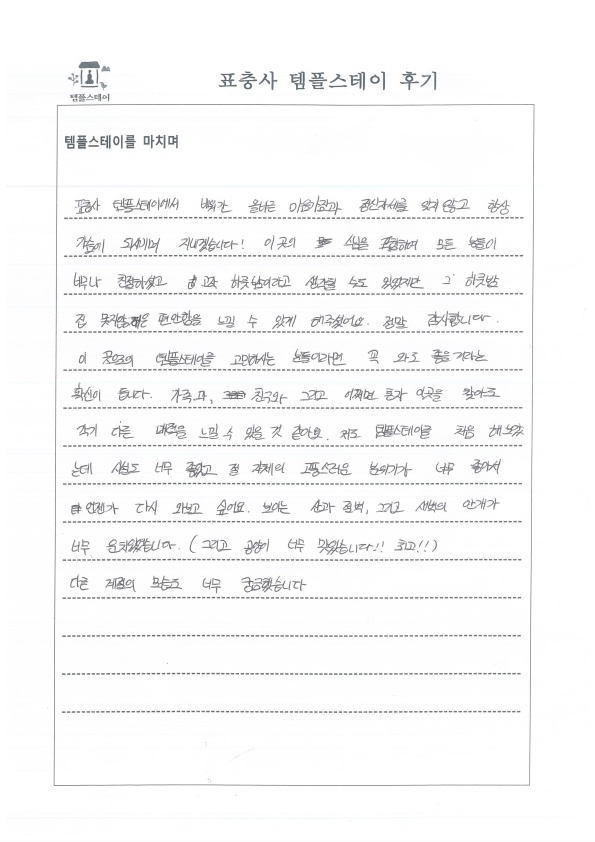 템플스테이
표충사 템플스테이 후기
템플스테이를 마치며
표충사 템플스테이에서 배워간 올바른 마음과 정신자세를 잊지 않고 항상
가슴에 새기며 지내겠습니다! 이곳의 스님을 포함하여 모든 분들이
너무나 친절하셨고 고작 하룻밤이라고 생각될 수도 있었지만 그 하룻밤
집 못지않은 편안함을 느낄 수 있게 해주셨어요. 정말 감사합니다.
이 곳으로의 템플스테이를 고민하시는 분들이라면 꼭 와도 좋을거라는
확신이 듭니다. 가족과, 친구와 그리고 어쩌면 혼자 이곳을 찾아도
각기 다른 매력을 느낄 수 있을 것 같아요. 저도 템플스테이를 처음 해보았
는데 시설도 너무 좋았고 절 자체의 고풍스러운 분위기가 너무 좋아서
언젠가 다시 와보고 싶어요. 보이는 산과 절벽, 그리고 새벽의 안개가
너무 운치있었습니다. (그리고 공양이 너무 맛있습니다!! 최고!!)
다른 계절의 모습도 너무 궁금했습니다